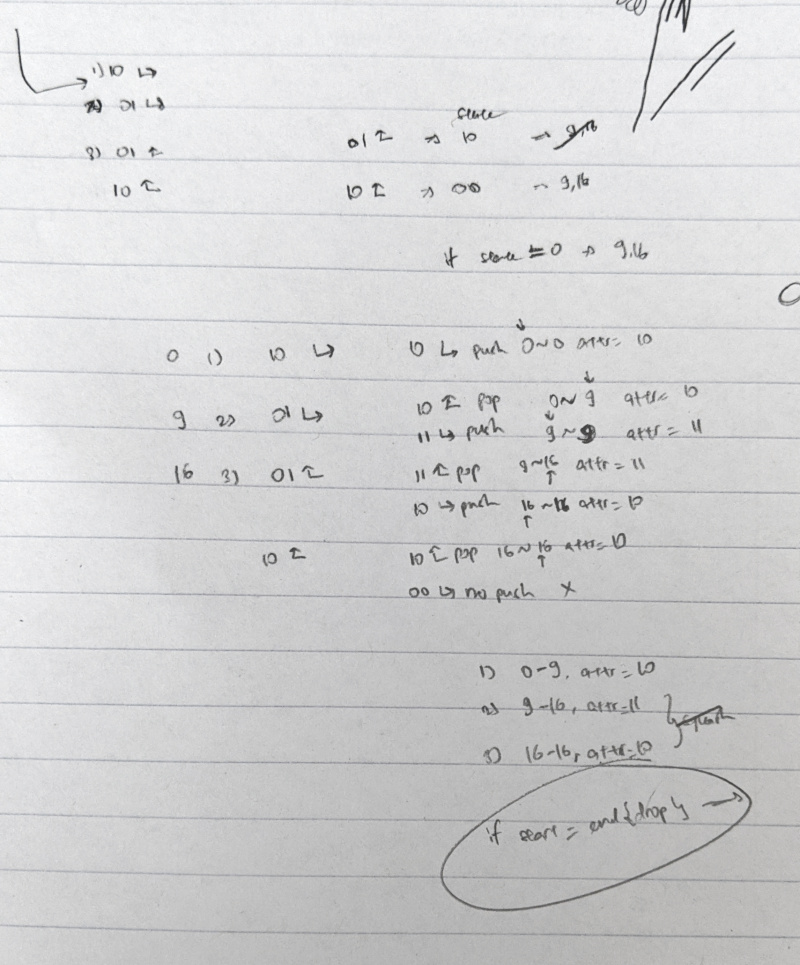 1) 10 ↳
2) 01 ↳
3) 01 ↥
10 ↥
state
01 ↥ → 10 → 9,16
10 ↥ → 00 ~ 9,16
if state == 0 → 9,16
0 1) 10 ↳ 10 ↳ push 0~0 attr= 10
10 ↥ pop 0~9 attr= 10
9 2) 01 ↳ 11 ↳ push 9~9 attr = 11
16 3) 01 ↥ 11 ↥ pop 9~16 attr= 11
10 ↳ push 16~16 attr= 10
10 ↥ 10 ↥ pop 16~16 attr= 10
00 ↳ no push X
1) 0-9, attr= 10
2) 9-16, attr=11
3) 16-16, attr=10
if start = end {drop}